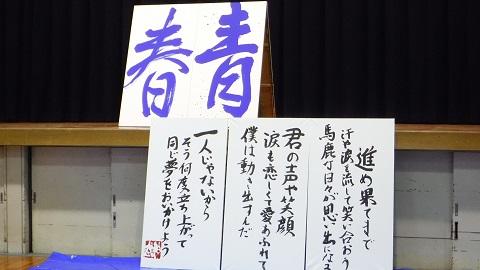 青春
進め果てまで
汗や涙を流して笑い合おう
馬鹿な日々が思い出になる
君の声や笑顔
涙も恋しくて愛あふれて
僕は動き出すんだ
一人じゃないから
そう何度も立ち上がって
同じ夢をおいかけよう